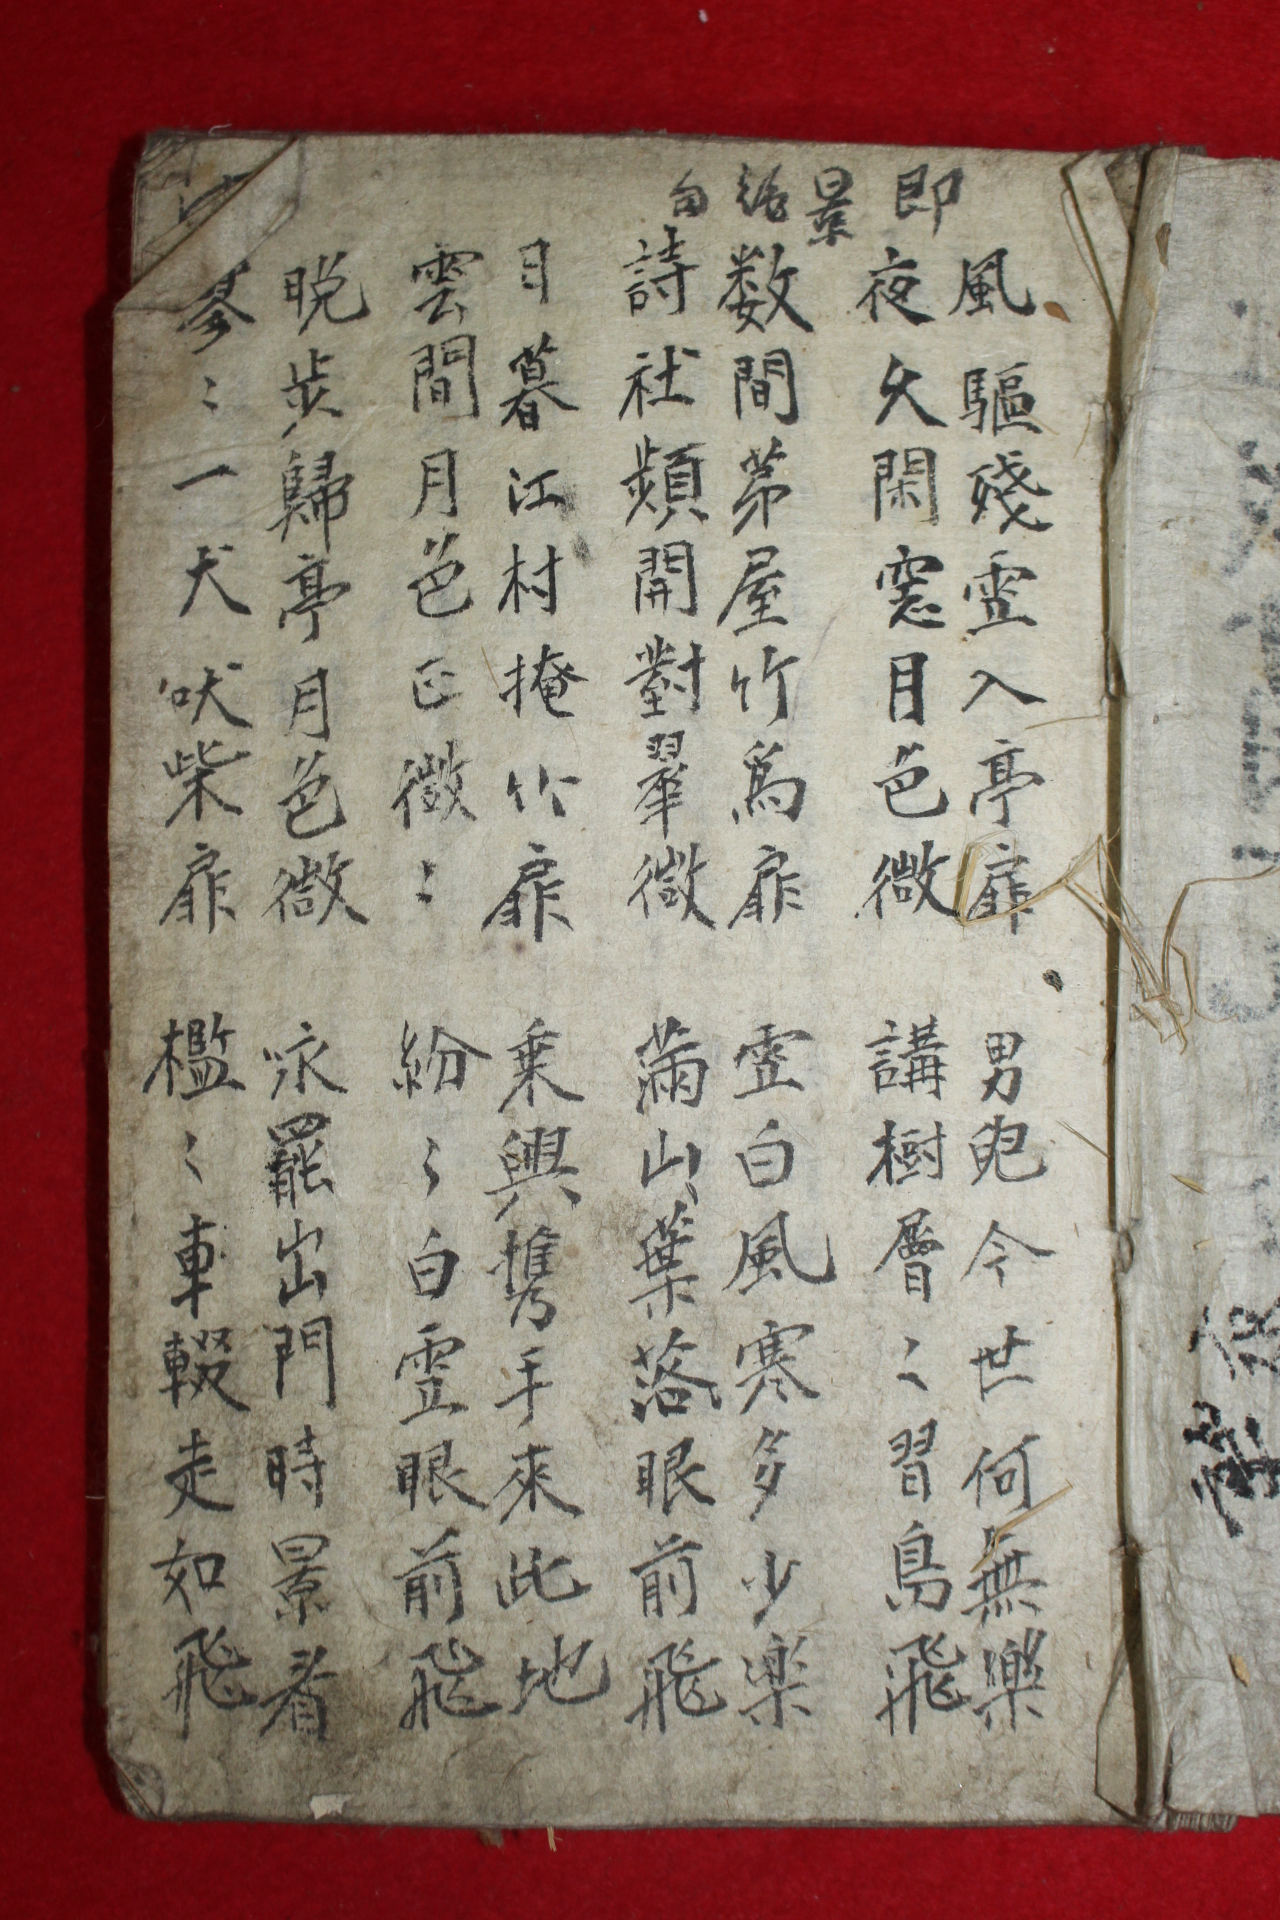 即景
風驅殘雲入亭扉 男兒今世何無樂
夜久閑窓月色微 講樹層〻習鳥飛
数間茅屋竹爲扉 雲白風寒多少樂
詩社頻開對翠微 滿山葉落眼前飛
日暮江村掩竹扉 乗興携手來此地
雲間月色正微〻 紛〻白雲眼前飛
晩步歸亭月色微 咏罷出門時景看
寥〻一犬吠柴扉 檻〻車輟走如飛